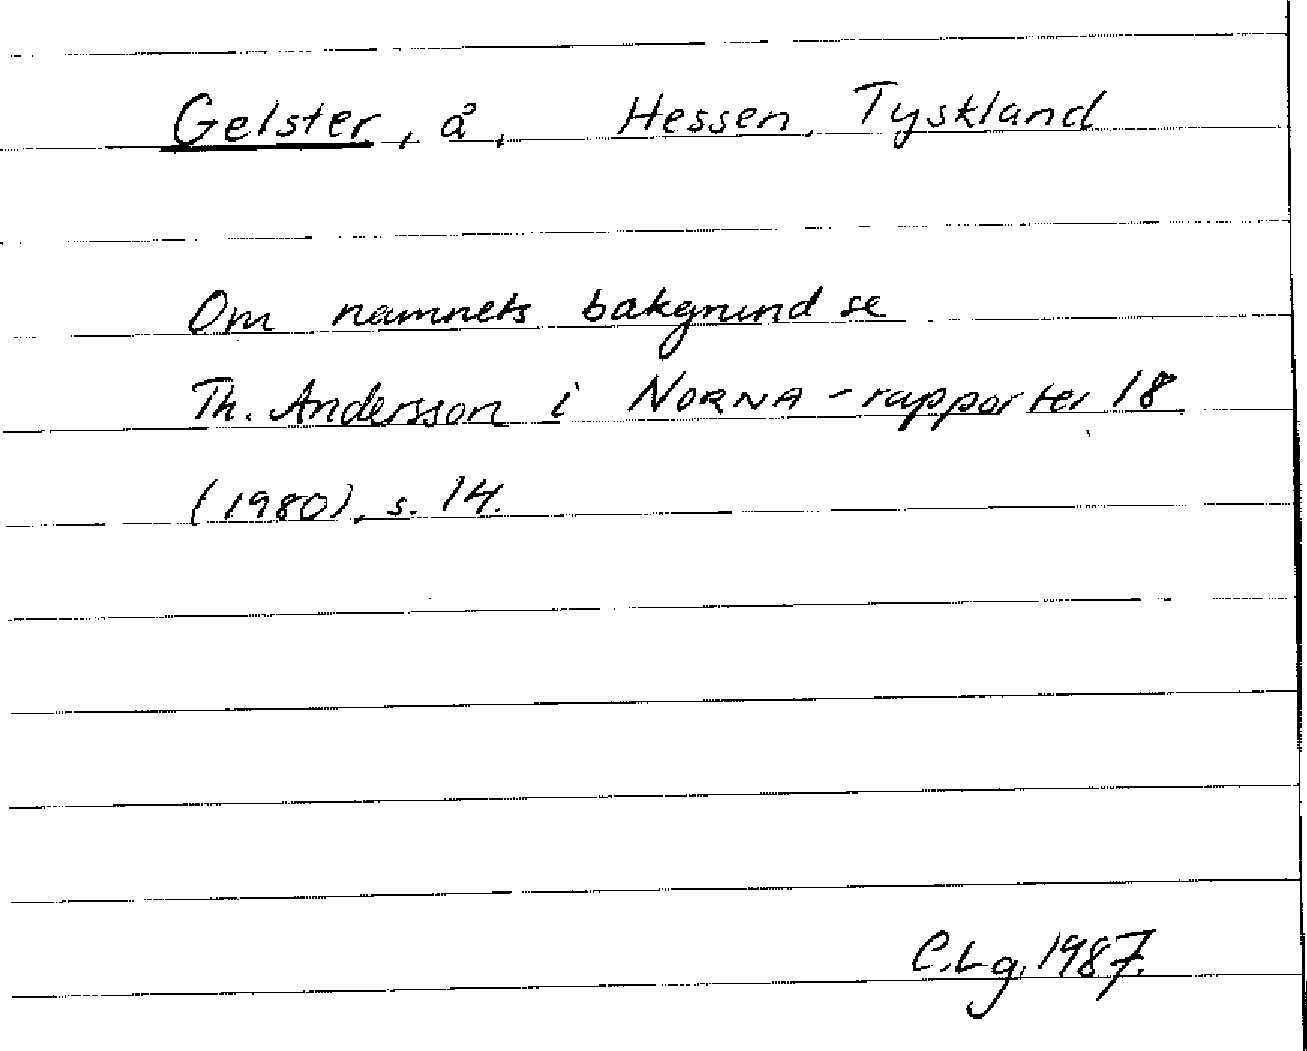 Gelster, å, Hessen, Tyskland
Om namnets bakgrund se
Th. Andersson i NORNA-rapporter 18
(1980), s. 14.
C.Lg. 1987.